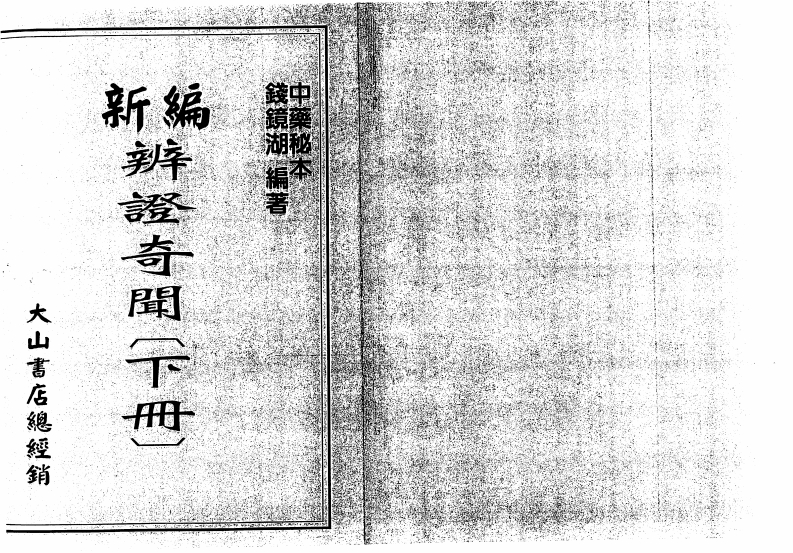 中藥秘本
錢鏡湖 編著
新編
辨證奇聞〔下冊〕
大山書店總經銷